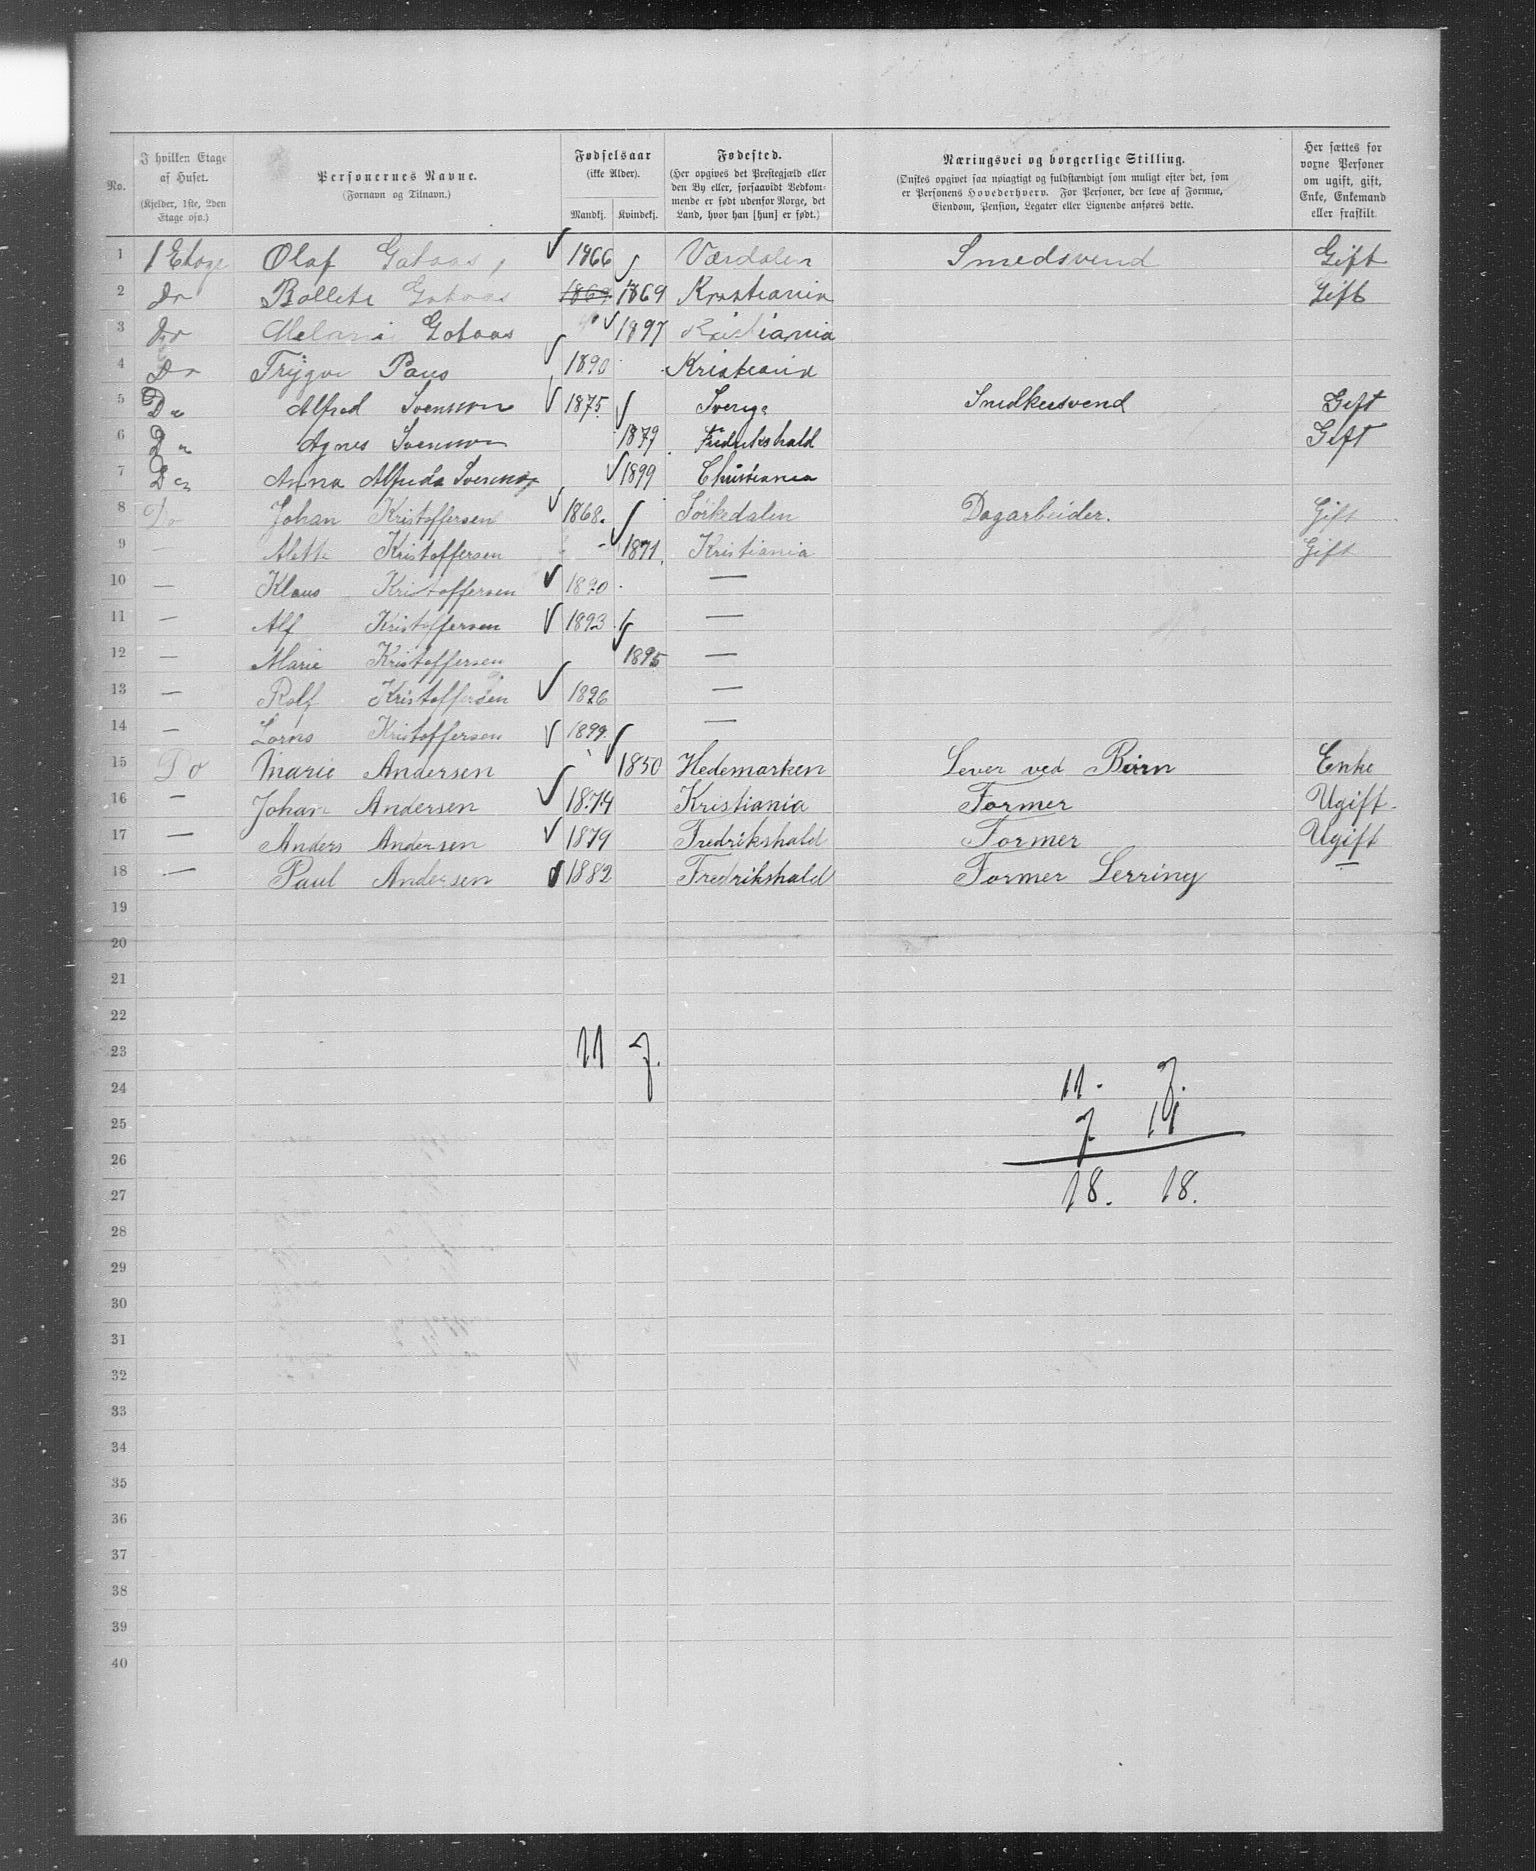 No.
I hvilken Etage af Huset.
(Kjelder, 1ste, 2den Etage osv.)
Personernes Navne.
(Fornavn og Tilnavn.)
Fødselsaar
(ikke Alder).
Mandkj. Kvindekj.
Fødested.
(Her opgives det Prestegjæld eller den By eller, forsaavidt Vedkommende er født udenfor Norge, det Land, hvor han [hun] er født.)
Næringsvei og borgerlige Stilling.
(Ønskes opgivet saa nøiagtigt og fuldstændigt som muligt efter det, som er Personens Hovederhverv. For Personer, der leve af Formue, Eiendom, Pension, Legater eller Lignende anføres dette.
Her sættes for voxne Personer om ugift, gift, Enke, Enkemand eller fraskilt.
1 1 Etage Olaf Gataas, 1866 Værdalen Smedsvend Gift
2 Do Bollete Gataas 1869 1869 Kristiania Gift
3 Do Gotaas 1897 Kristiania
4 Do Trygve Paus 1890 Kristiania
5 Do Alfred Svensson 1875 Sverige Snedkersvend Gift
6 Do Agnes Svensson 1879 Fredrikshald Gift
7 Do Anna Alfreda Svensson 1899 Christiania
8 Do Johan Kristoffersen 1868. Sørkedalen Dagarbeider. Gift
9 — Alette Kristoffersen - 1871. Kristiania Gift
10 — Klaus Kristoffersen 1890 —
11 — Alf Kristoffersen 1893 —
12 — Marie Kristoffersen 1895 —
13 — Rolf Kristoffersen 1896 —
14 — Kristoffersen 1899. —
15 Do Marie Andersen 1850 Hedemarken Lever ved Børn Enke
16 — Johan Andersen 1874 Kristiania Former Ugift
17 — Anders Andersen 1879 Fredrikshald Former Ugift
18 — Paul Andersen 1882 Fredrikshald Former Lerring —
19
20
21
22
23 11 7.
24 11. 7.
25 7 11
26
27 18. 18.
28
29
30
31
32
33
34
35
36
37
38
39
40